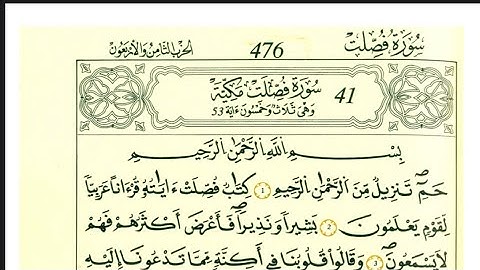 سُورَةُ فُصِّلَتْ 476 الحِزْبُ الثَّامِنُ وَالأَرْبَعُونَ
سُورَةُ فُصِّلَتْ مَكِّيَّة 41
وَهْيَ ثَلَاثٌ وَخَمْسُونَ ءَايَة 53
بِسْمِ اللَّهِ الرَّحْمَٰنِ الرَّحِيمِ
حَمِٓ تَنزِيلٌ مِّنَ الرَّحْمَٰنِ الرَّحِيمِ 1 كِتَٰبٌ فُصِّلَتْ ءَايَٰتُهُۥ قُرْءَاناً عَرَبِيّاً
لِّقَوْمٍ يَعْلَمُونَ 2 بَشِيراً وَنَذِيراً فَأَعْرَضَ أَكْثَرُهُمْ فَهُمْ
لَا يَسْمَعُونَ 3 وَقَالُواْ قُلُوبُنَا فِي أَكِنَّةٍ مِّمَّا تَدْعُونَا إِلَيْهِ